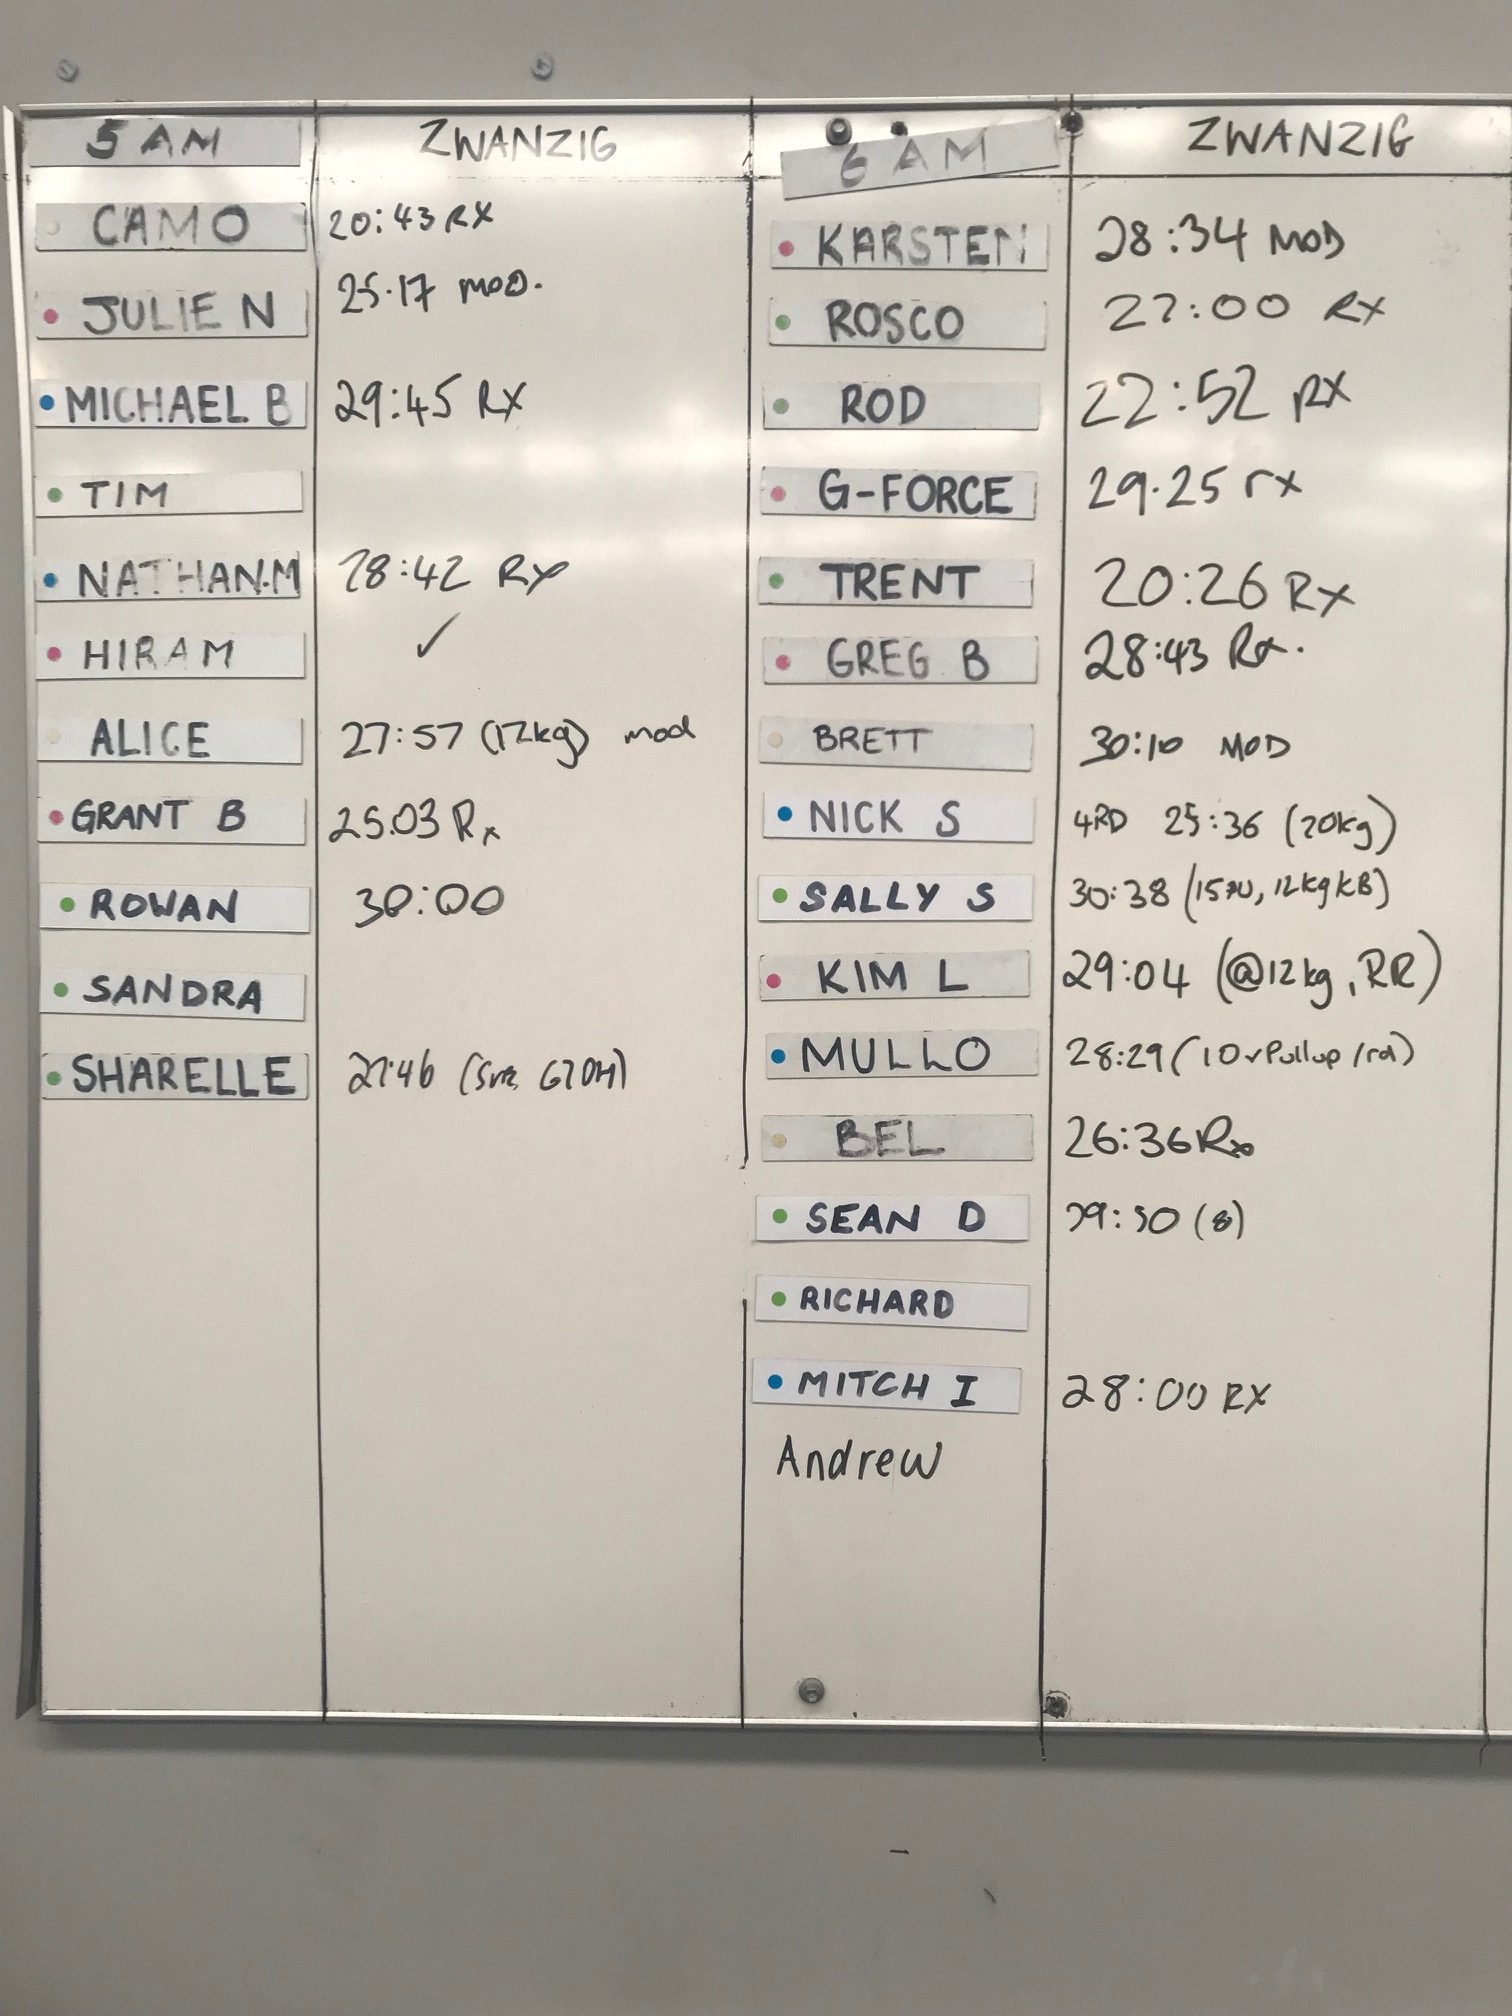 5 AM ZWANZIG
CAMO 20:43 RX
JULIE N 25.17 MOD.
MICHAEL B 29:45 RX
TIM
NATHAN.M 28:42 RX
HIRAM ✓
ALICE 27:57 (12kg) mod
GRANT B 25.03 Rx
ROWAN 30:00
SANDRA
SHARELLE 27:46
6 AM ZWANZIG
KARSTEN 28:34 MOD
ROSCO 27:00 RX
ROD 22:52 RX
G-FORCE 29.25 rx
TRENT 20:26 Rx
GREG B 28:43 Rx.
BRETT 30:10 MOD
NICK S 4RD 25:36 (20kg)
SALLY S 30:38 (15PU, 12kg KB)
KIM L 29:04 (@12kg, RR)
MULLO 28:29 (10 Pullup/rd)
BEL 26:36 Rx
SEAN D 29:50 (8)
RICHARD
MITCH I 28:00 RX
Andrew